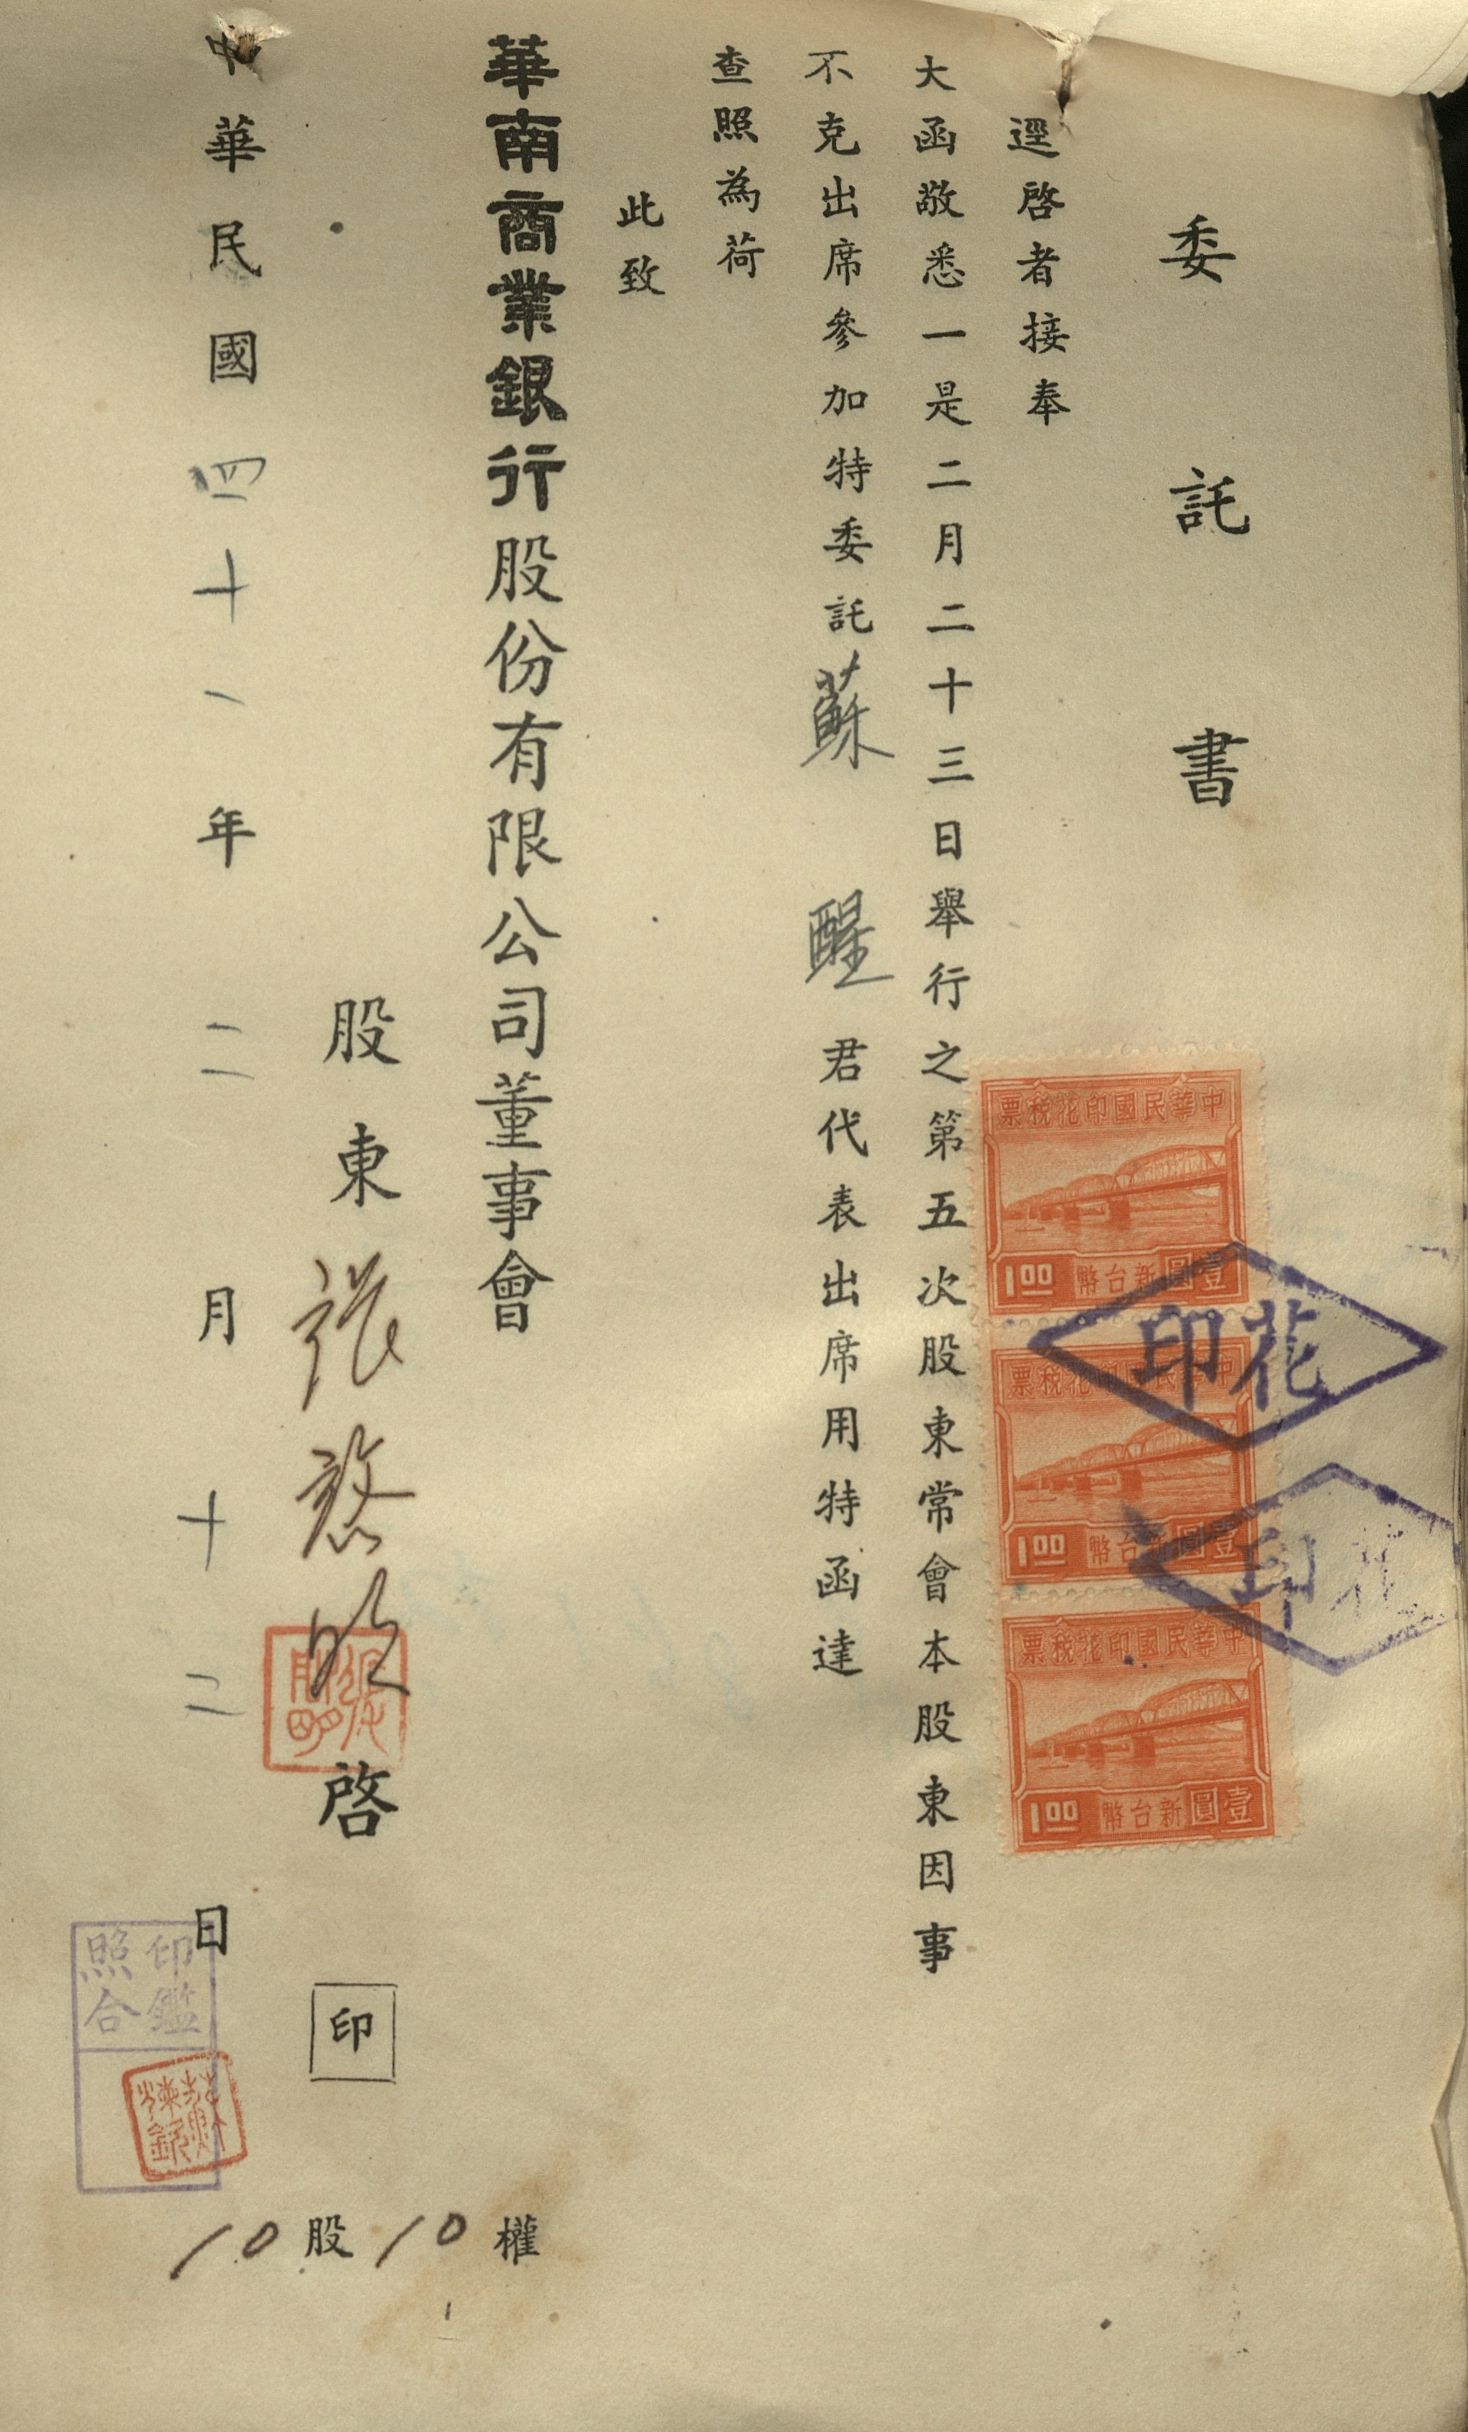 委託書
逕啓者接奉
大函敬悉一是二月二十三日舉行之第五次股東常會本股東因事
不克出席參加特委託蘇醒君代表出席用特函達
查照為荷
此致
華南商業銀行股份有限公司董事會
股東張啓
印
中華民國四十一年二月十二日
10股10權
票稅花印國民華中
1.00 幣台新圓壹
票稅花印國民華中
1.00 幣台新圓壹
票稅花印國民華中
1.00 幣台新圓壹
印花
印花
印鑑
照合